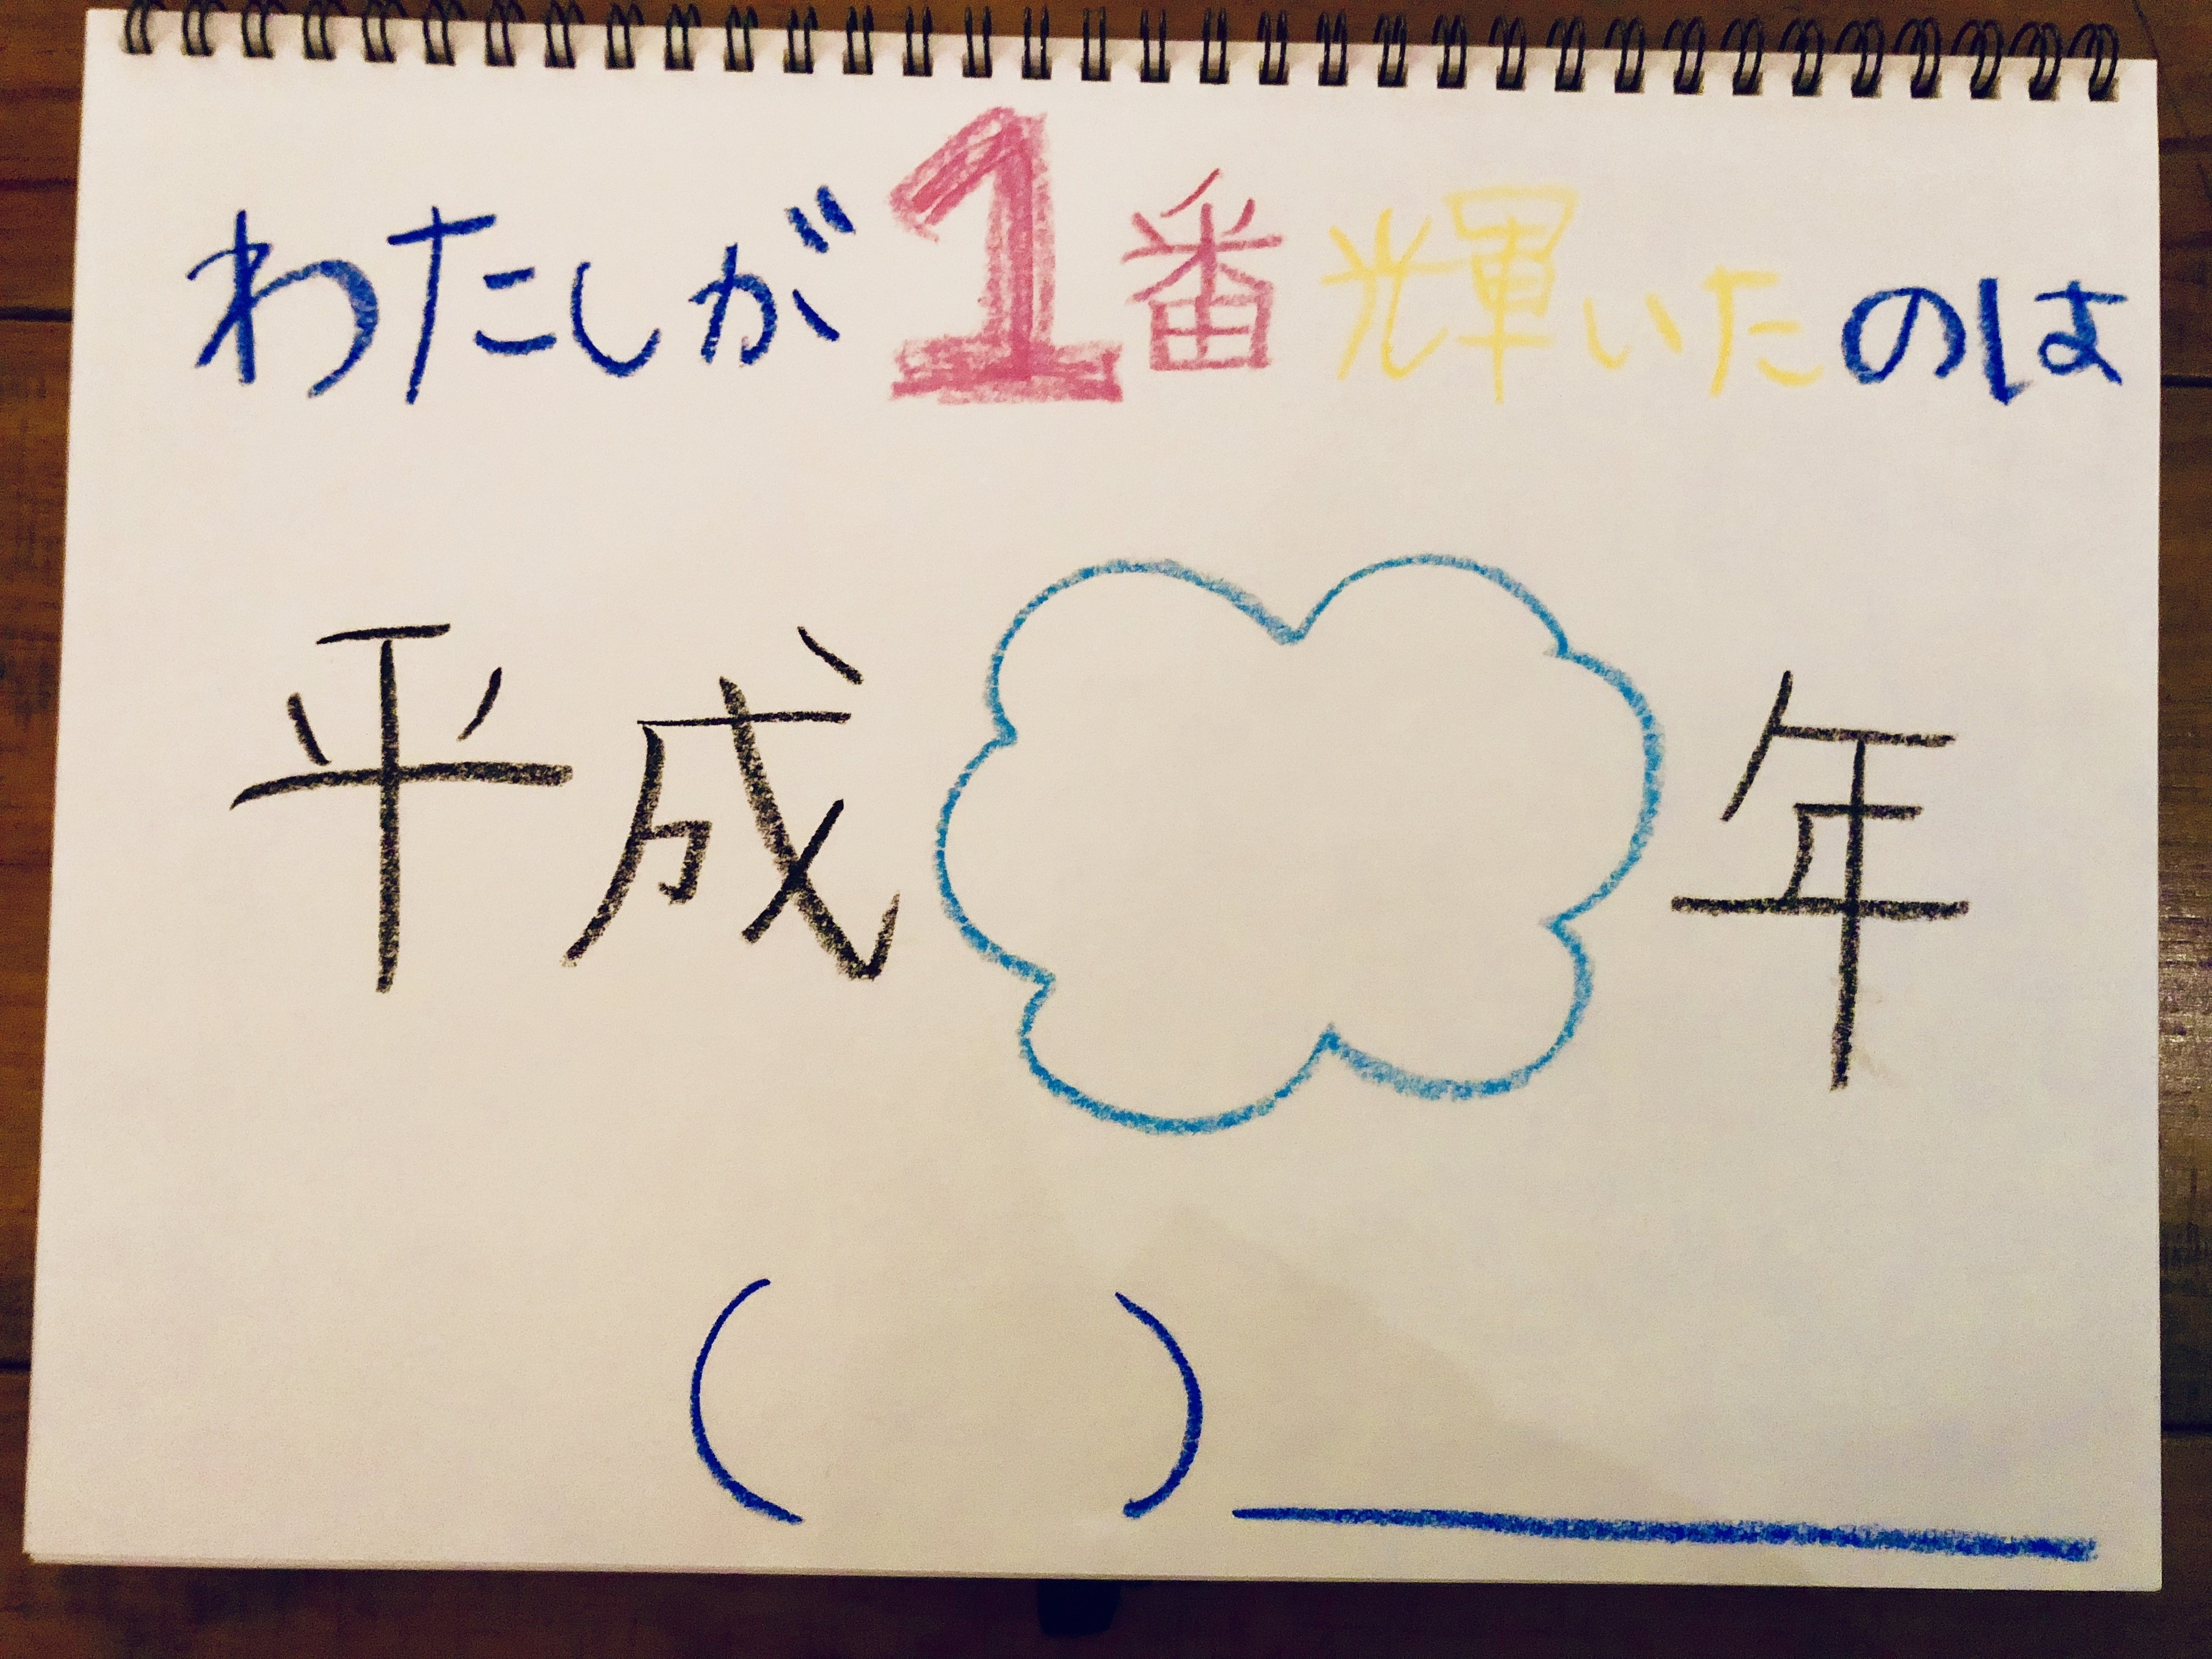 わたしが1番輝いたのは
平成 年
( )